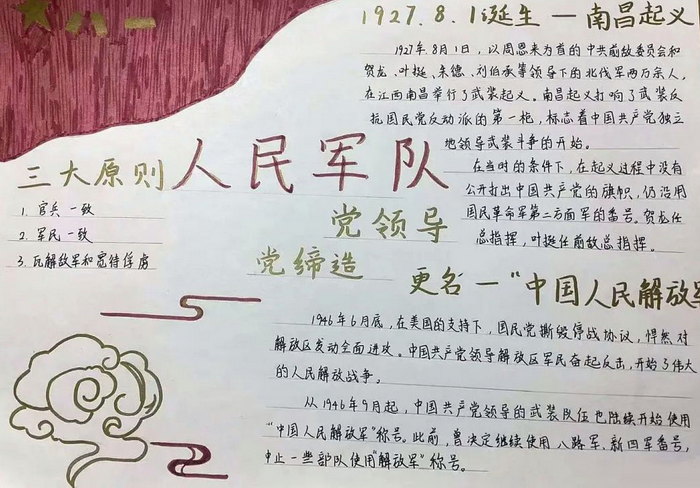 八一
1927.8.1诞生—南昌起义
1927年8月1日,以周恩来为首的中共前敌委员会和
贺龙、叶挺、朱德、刘伯承等领导下的北伐军两万余人,
在江西南昌举行了武装起义。南昌起义打响了武装反
抗国民党反动派的第一枪,标志着中国共产党独立
地领导武装斗争的开始。
在当时的条件下,在起义过程中没有
公开打出中国共产党的旗帜,仍沿用
国民革命军第二方面军的番号。贺龙任
总指挥,叶挺任前敌总指挥。
人民军队
党领导
党缔造
三大原则
1. 官兵一致
2. 军民一致
3. 瓦解敌军和宽待俘虏
更名—“中国人民解放军
1946年6月底,在美国的支持下,国民党撕毁停战协议,悍然对
解放区发动全面进攻。中国共产党领导解放区军民奋起反击,开始了伟大
的人民解放战争。
从1946年9月起,中国共产党领导的武装队伍也陆续开始使用
“中国人民解放军”称号。此前,曾决定继续使用八路军、新四军番号,
中止一些部队使用“解放军”称号。